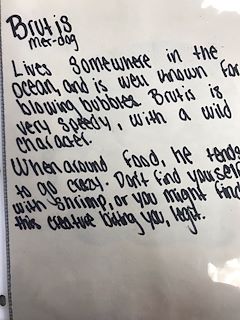 Brutis
mer-dog
Lives somewhere in the
ocean, and is well known for
blowing bubbles. Brutis is
very speedy, with a wild
character.
When around food, he tends
to go crazy. Don't find yourself
with shrimp, or you might find
this creature biting you, legit.